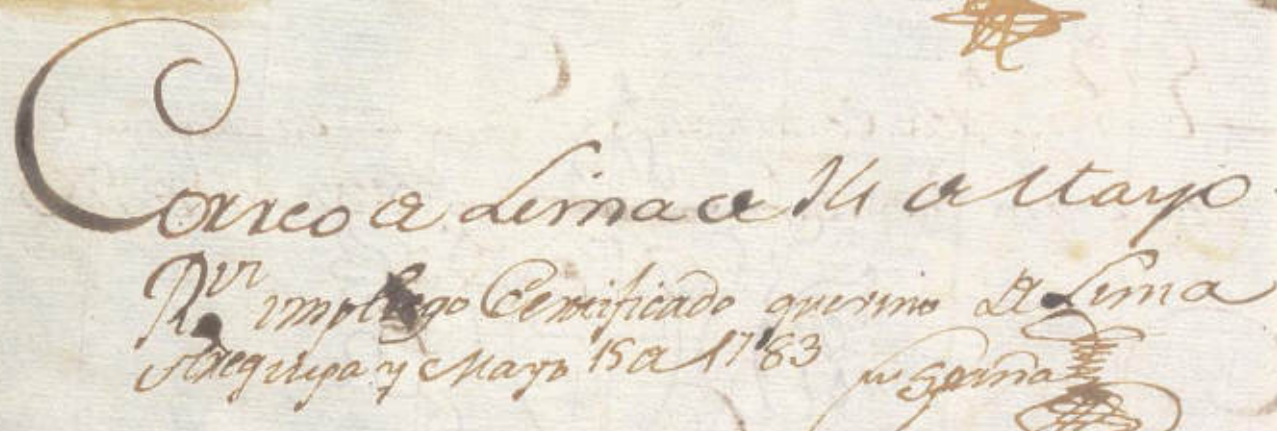 Correo de Lima de 14 de Mayo
Rvi un pliego Certificado que vino de Lima
Arequipa y Mayo 15 de 1783